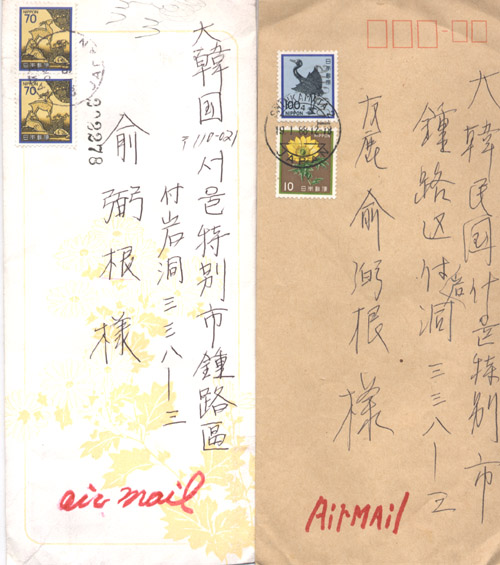 70
日本郵便
NIPPON
70
日本郵便
NIPPON
大韓國 서울特別市 鍾路區
〒110-021
付岩洞 三三八ー三
俞弼根 様
air mail
日本郵便
NIPPON
100
10
日本郵便
大韓民国 서울特別市
鍾路区付岩洞 三三八ー三
俞弼根 様
AirMAil